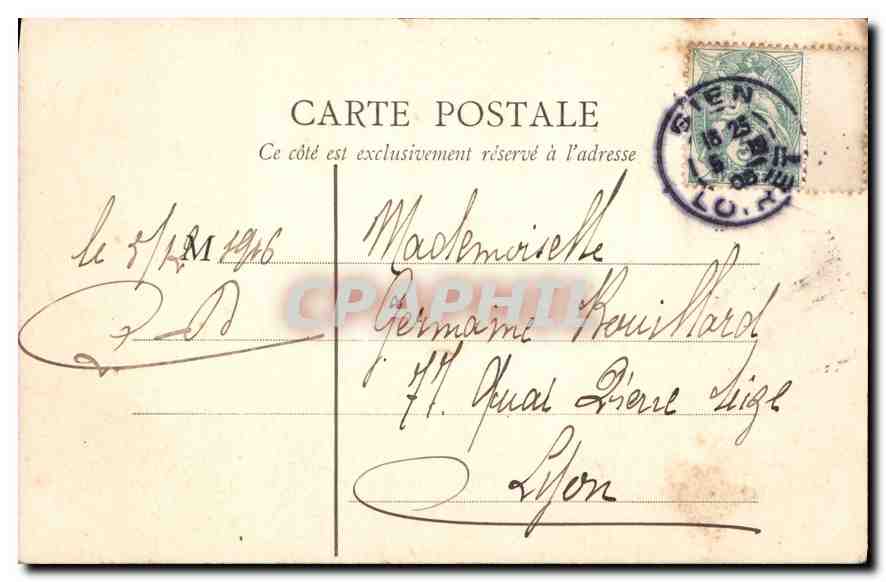 CARTE POSTALE
Ce côté est exclusivement réservé à l'adresse
GIEN
16 25
5
06
LOIRET
le 5/12 1906
M
Mademoiselle
Germaine Rouillard
77. Quai Pierre Scize
Lyon
CPAPHIL